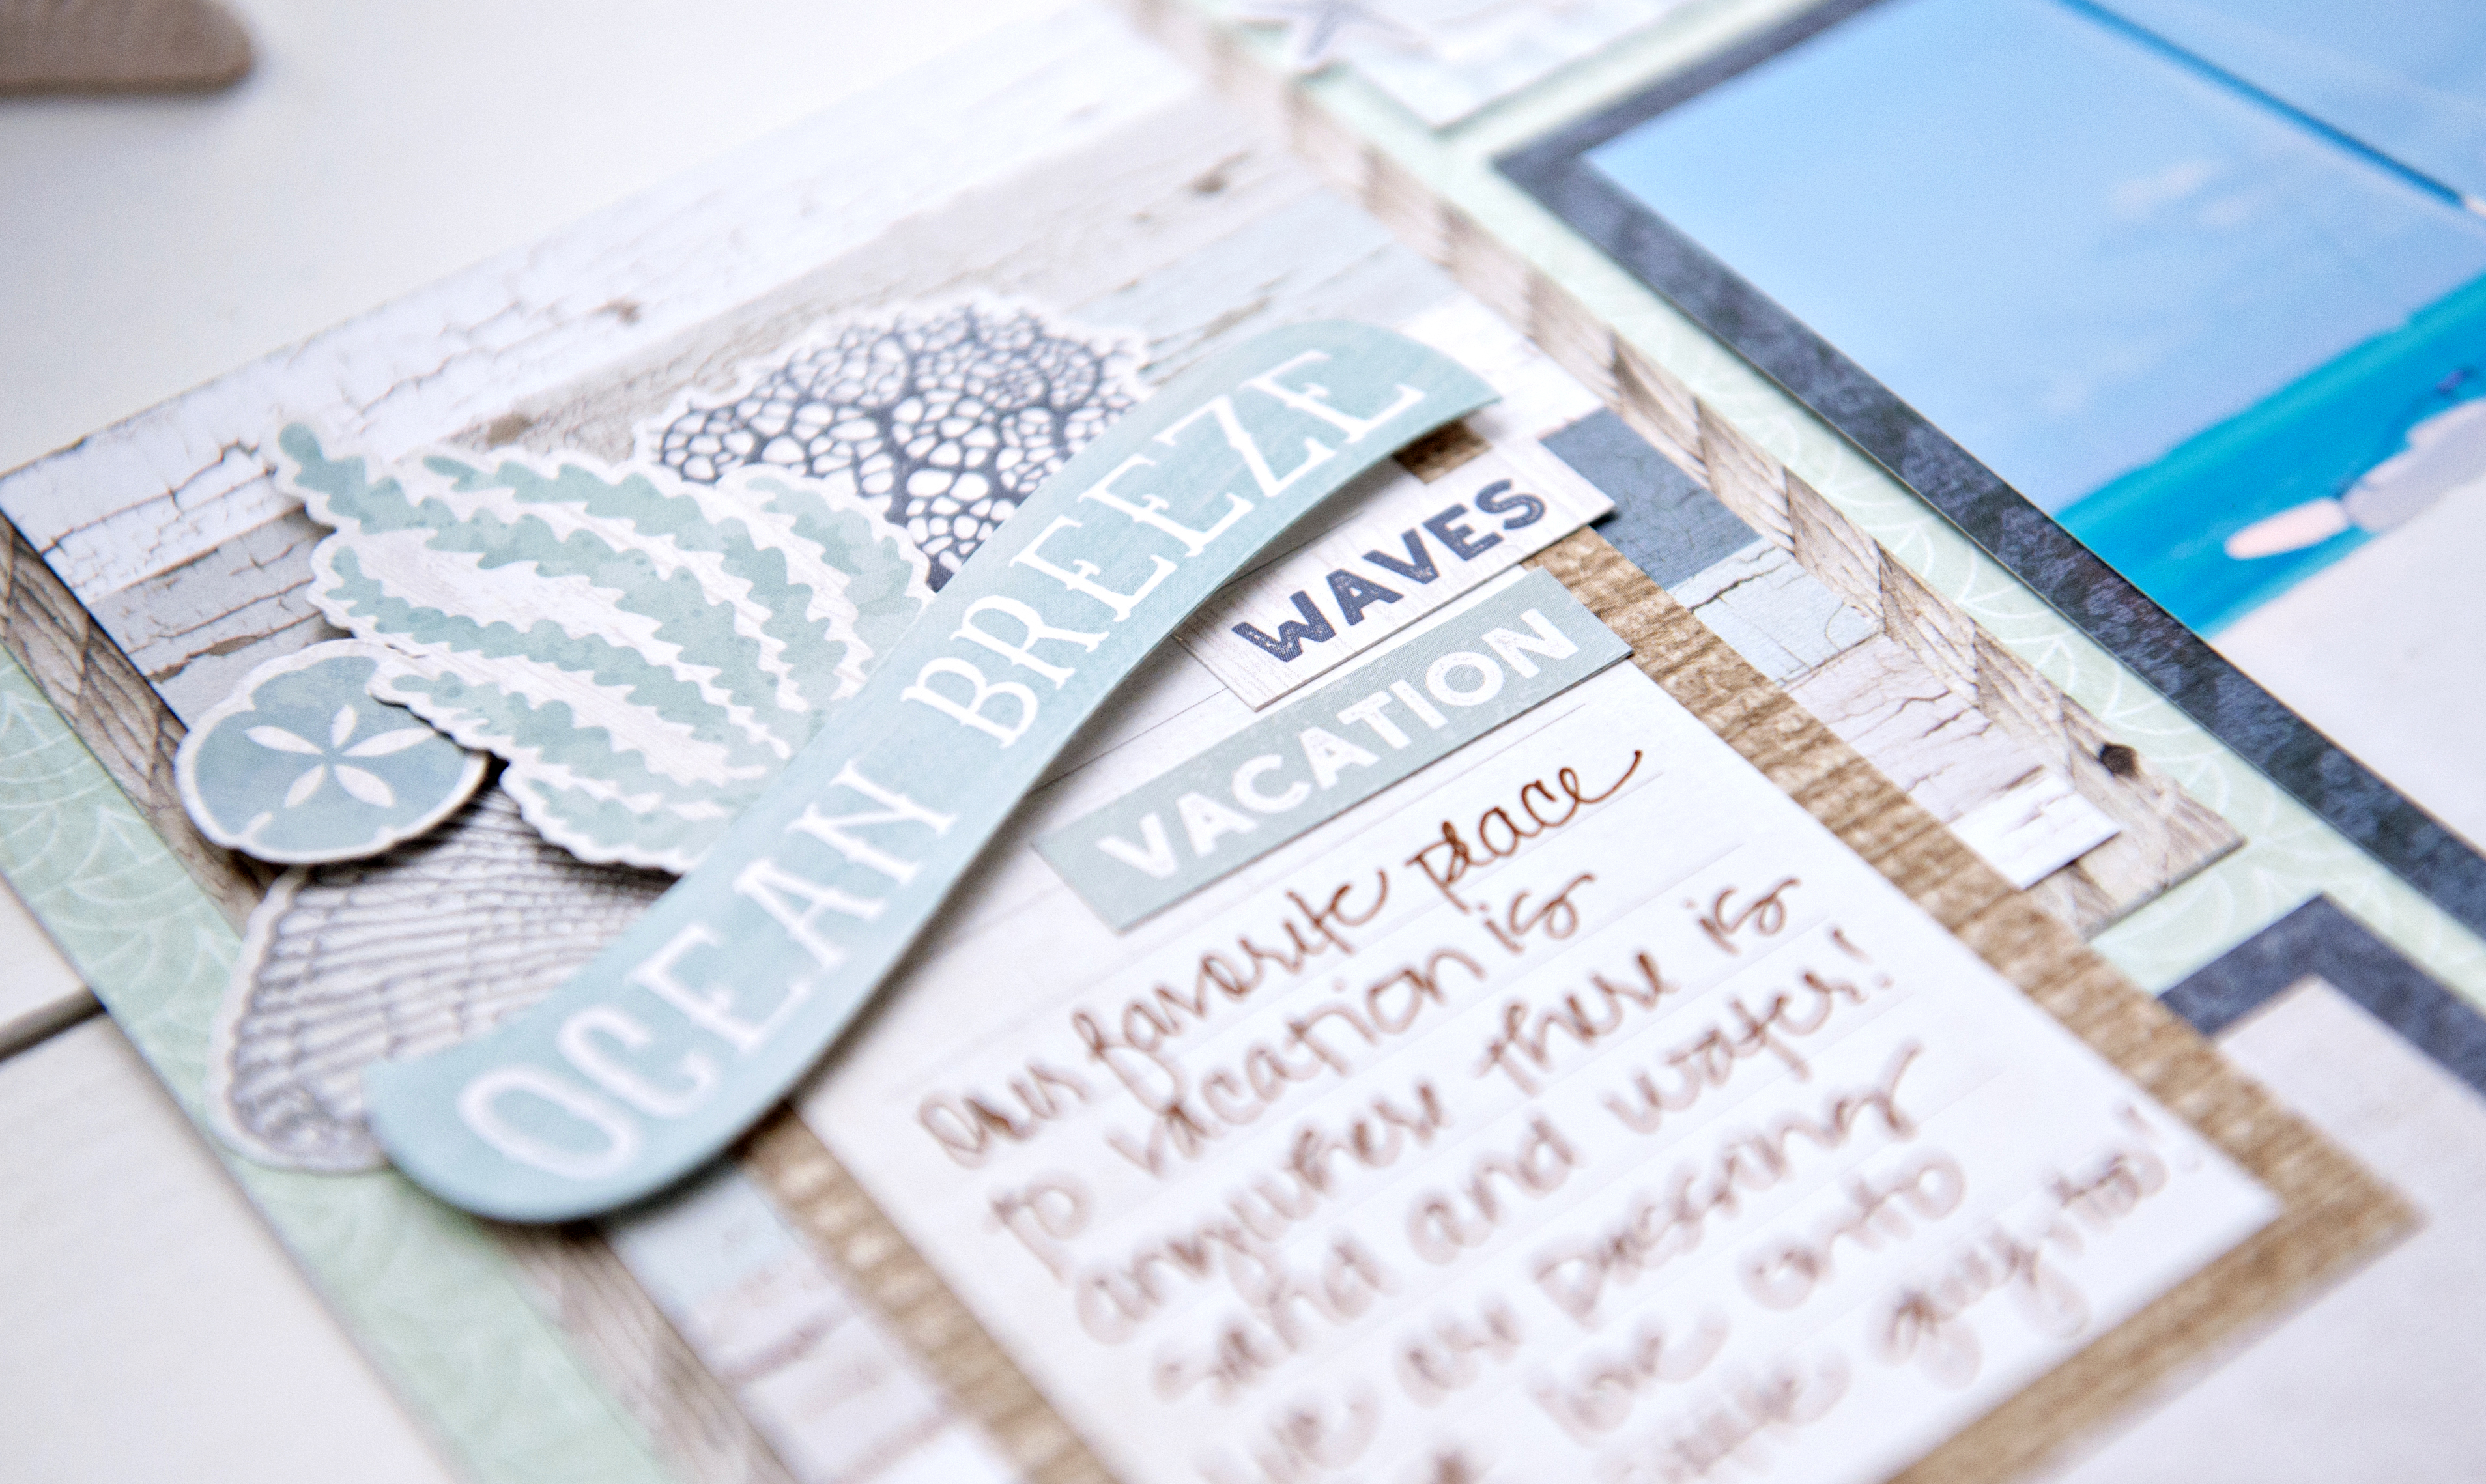 OCEAN BREEZE
WAVES
VACATION
our favorite place
to vacation is
anywhere there is
sand and water!
are passing
love onto
guys, too!